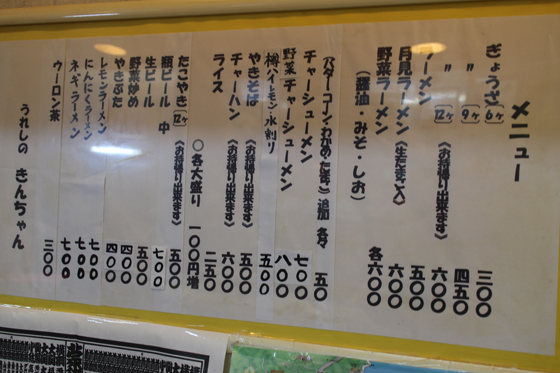 メニュー
ぎょうざ(6ヶ) 三〇〇
〃 (9ヶ) 四五〇
〃 (12ヶ)《お持帰り出来ます》 六〇〇
ラーメン 五〇〇
月見ラーメン《生たまご入》 六〇〇
野菜ラーメン 各六〇〇
(醤油・みそ・しお)
(バターコーン・わかめ・たまご)追加各々 五〇
チャーシューメン 七〇〇
野菜チャーシューメン 八〇〇
樽ハイ(レモン)・水割り 五〇〇
やきそば《お持帰り出来ます》 五〇〇
チャーハン《お持帰り出来ます》 六〇〇
ライス 二五〇
〇各大盛り 一〇〇円増
たこやき(12ヶ)《お持帰り出来ます》 五〇〇
瓶ビール 中 七〇〇
生ビール 五〇〇
野菜炒め 四〇〇
やきぶた 四〇〇
レモンラーメン 七〇〇
にんにくラーメン 七〇〇
ネギラーメン 七〇〇
ウーロン茶 三〇〇
うれしの きんちゃん